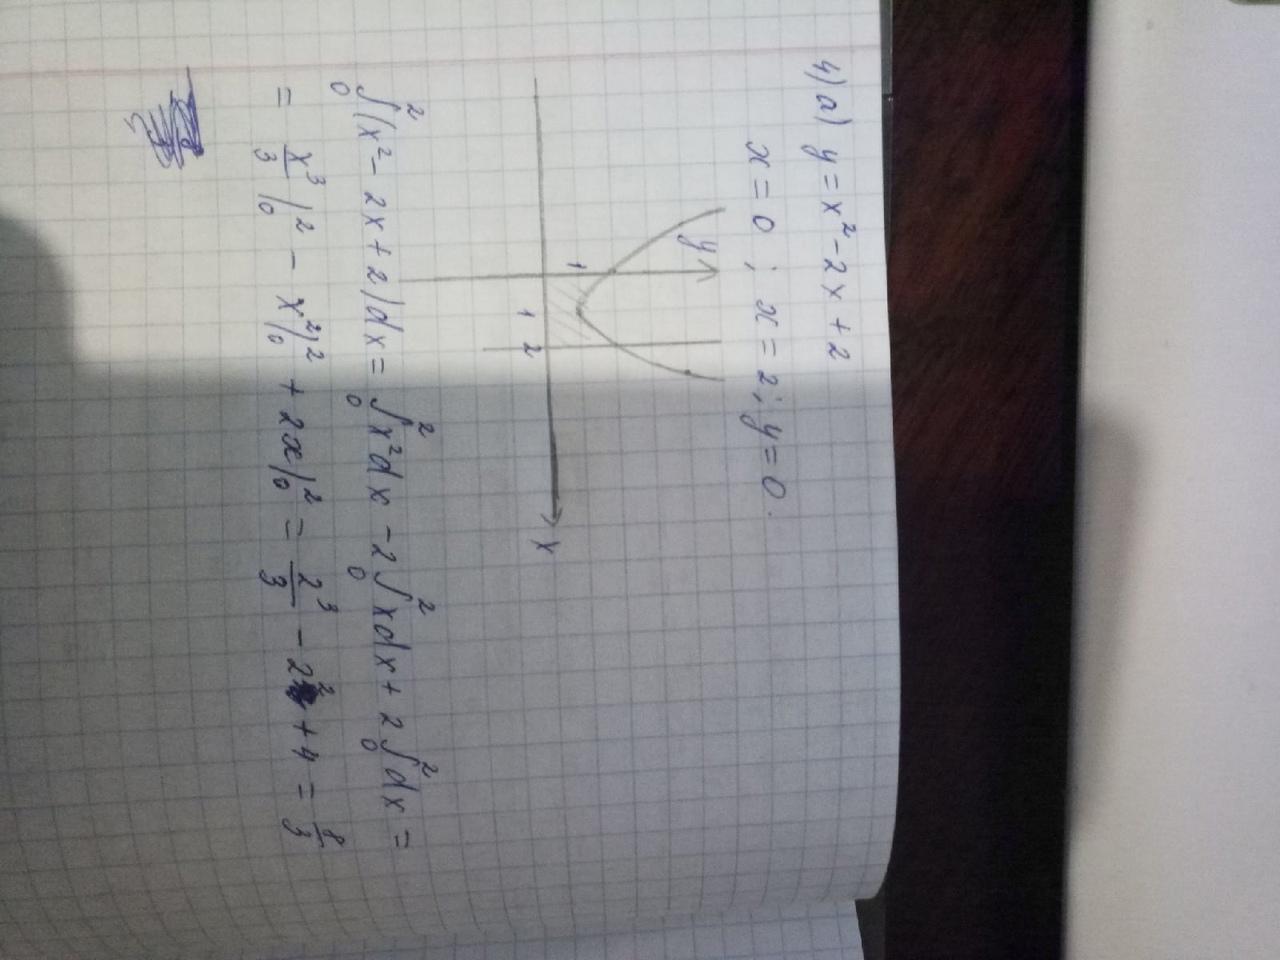 4) а) y = x² - 2x + 2
x = 0 ; x = 2 ; y = 0.
y
1
1 2 x
∫₀² (x² - 2x + 2) dx = ∫₀² x² dx - 2 ∫₀² x dx + 2 ∫₀² dx =
= x³/3 |₀² - x² |₀² + 2x |₀² = 2³/3 - 2² + 4 = 8/3